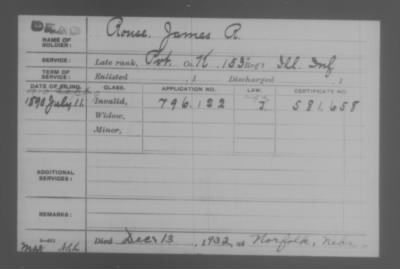 DEAD
NAME OF SOLDIER: Rouse, James R.
SERVICE: Late rank, Pvt. Co. K, 153 Reg't Ill. Inf
TERM OF SERVICE: Enlisted , 1 Discharged , 1
DATE OF FILING. CLASS. APPLICATION NO. LAW. CERTIFICATE NO.
1890 July 11 Invalid, 796.122 581.658
Widow,
Minor,
ADDITIONAL SERVICES:
REMARKS:
Died Dec 13, 1932, at Norfolk, Nebr.